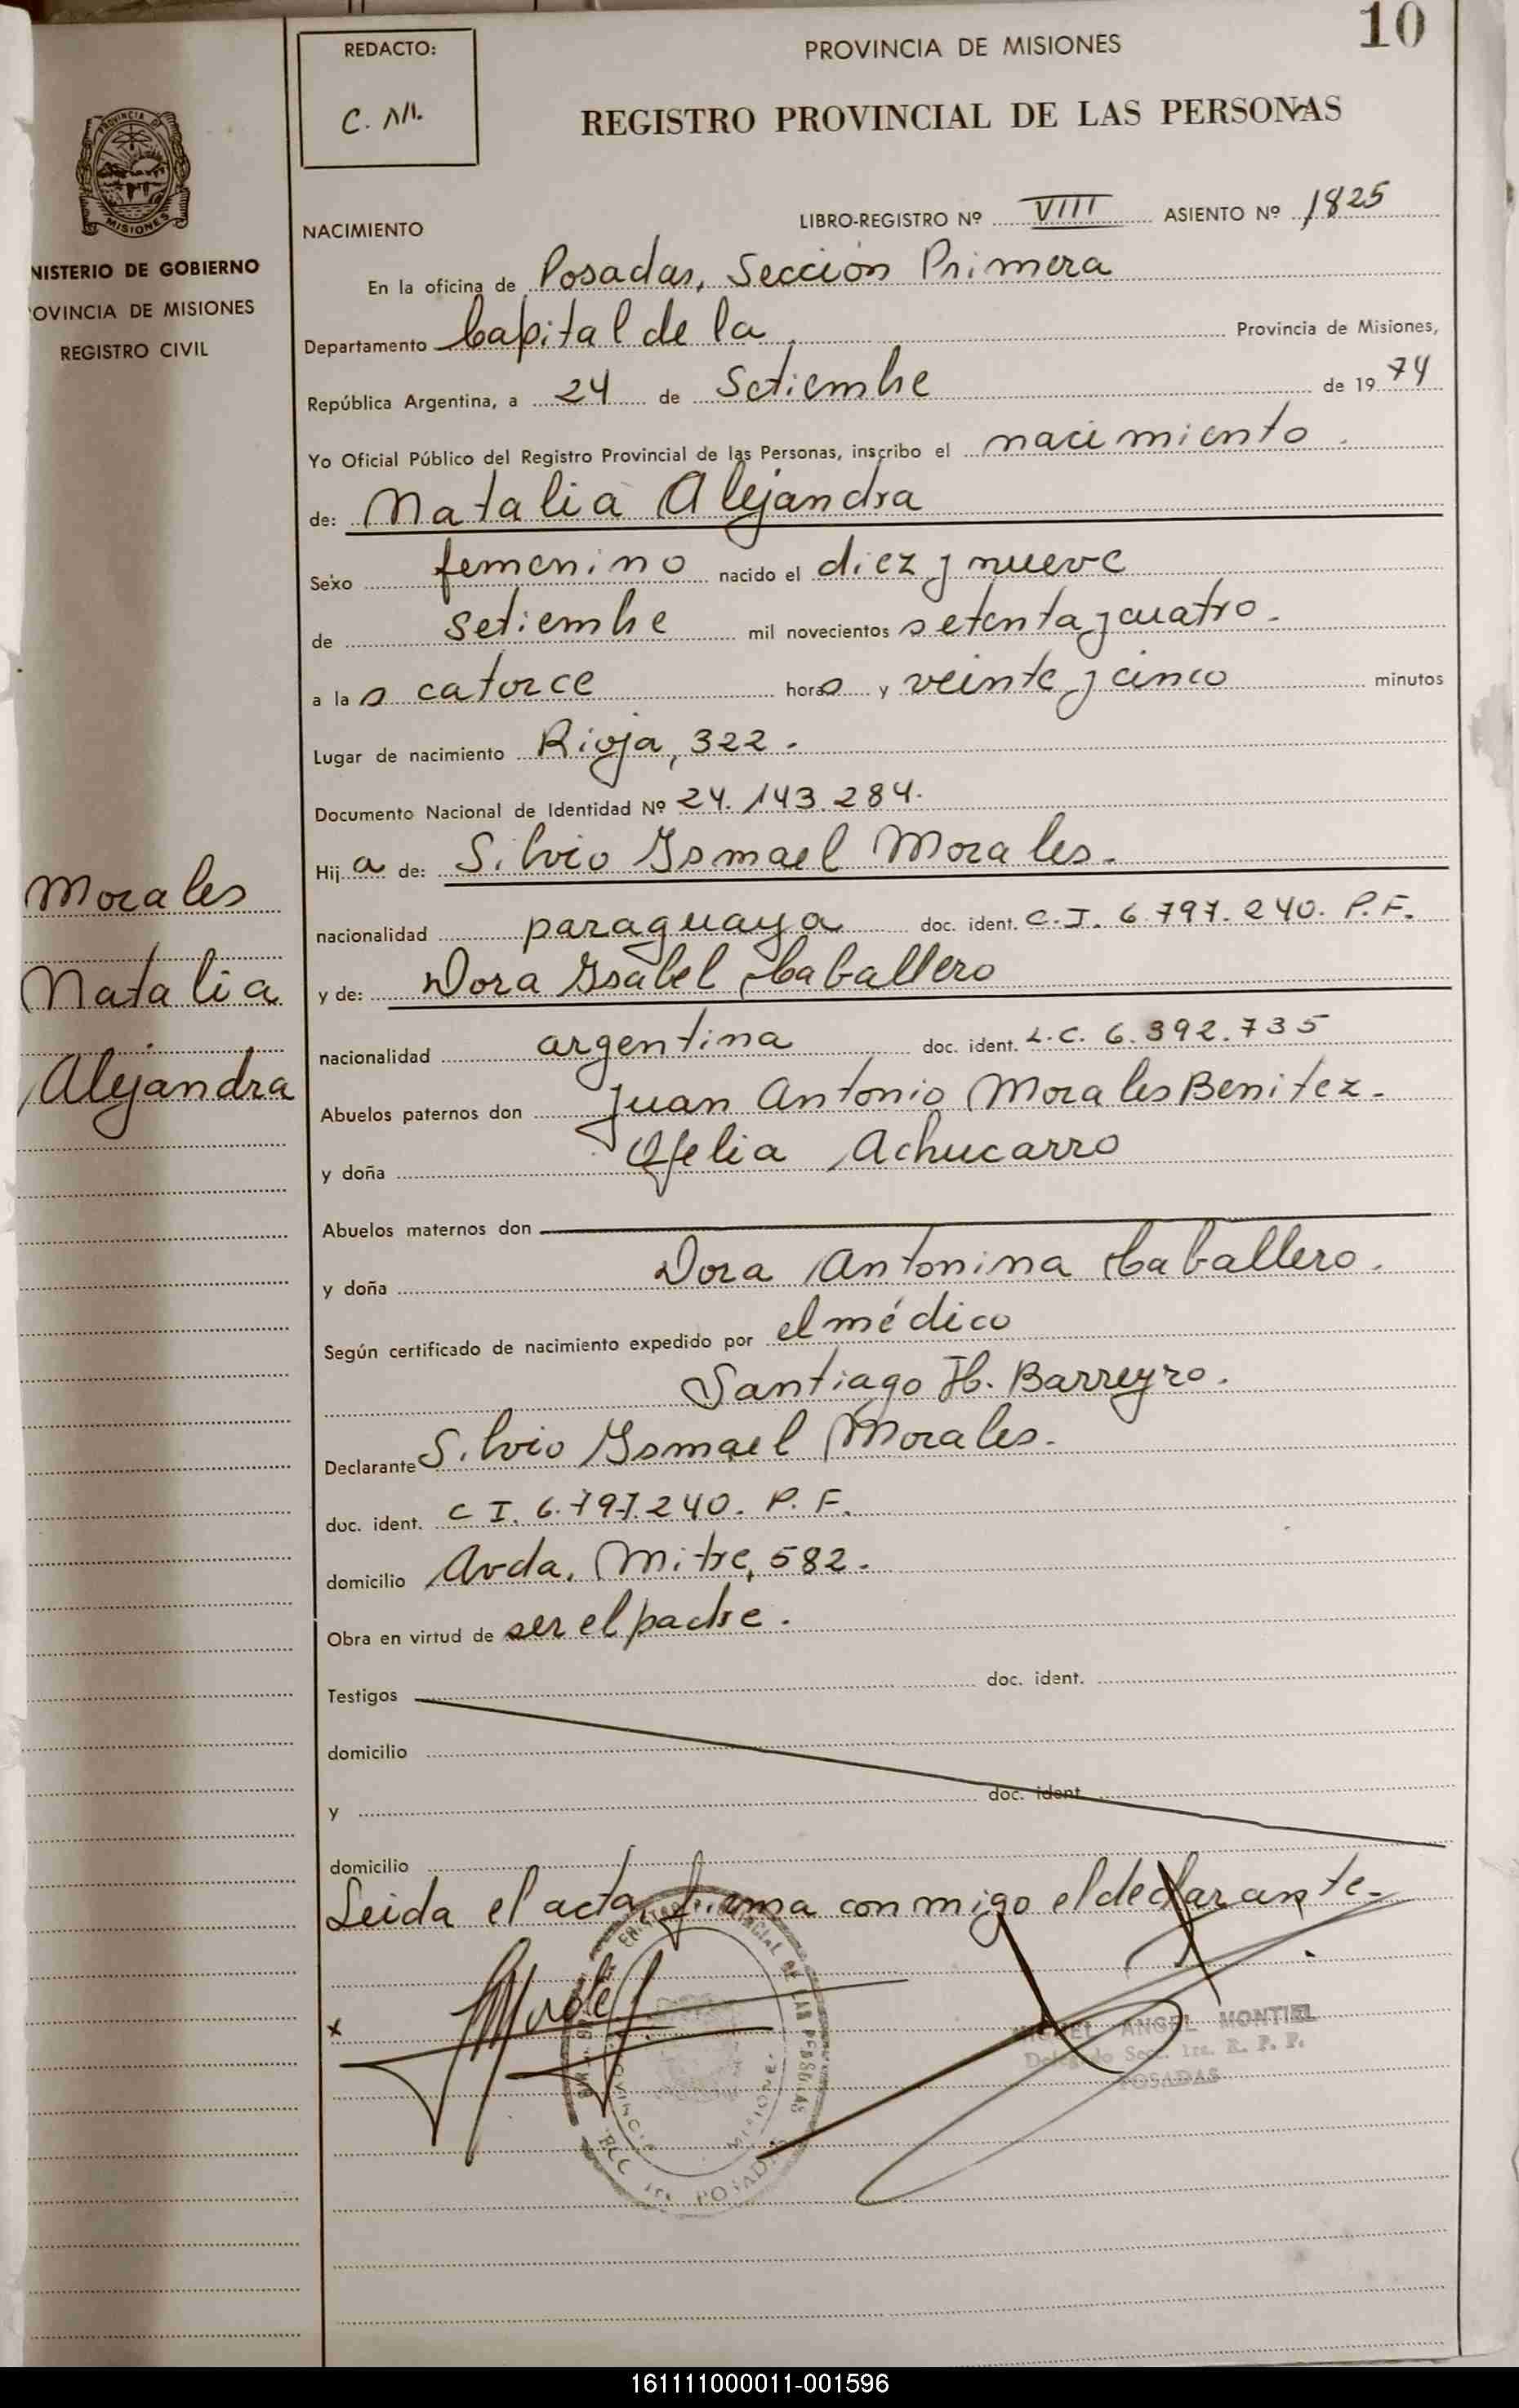 10
REDACTO:
PROVINCIA DE MISIONES
REGISTRO PROVINCIAL DE LAS PERSONAS
PROVINCIA DE
MISIONES
NISTERIO DE GOBIERNO
OVINCIA DE MISIONES
REGISTRO CIVIL
NACIMIENTO
LIBRO-REGISTRO Nº VIII ASIENTO Nº 1825
En la oficina de Posadas, Sección Primera
Departamento Capital de la Provincia de Misiones,
República Argentina, a 24 de Setiembre de 1974
Yo Oficial Público del Registro Provincial de las Personas, inscribo el nacimiento.
de: Natalia Alejandra
Sexo femenino nacido el diez y nueve
de setiembre mil novecientos setenta y cuatro.
a las catorce horas y veinte y cinco minutos
Lugar de nacimiento Rioja, 322.
Documento Nacional de Identidad Nº 24.143.284.
Hija de: Silvio Ismael Morales.
nacionalidad paraguaya doc. ident. C.I. 6.797.240. P.F.
y de: Dora Isabel Caballero
nacionalidad argentina doc. ident. L.C. 6.392.735
Abuelos paternos don Juan Antonio Morales Benitez.
y doña Ofelia Achucarro
Abuelos maternos don
y doña Dora Antonina Caballero.
Según certificado de nacimiento expedido por el médico
Santiago H. Barreyro.
Declarante Silvio Ismael Morales.
doc. ident. C I. 6.797.240. P. F.
domicilio Avda. Mitre, 582.
Obra en virtud de ser el padre.
Testigos doc. ident.
domicilio
y doc. ident.
domicilio
Leida el acta, firma conmigo el declarante.
Morales
Natalia
Alejandra
x
MIGUEL ANGEL MONTIEL
Delegado Secc. 1ra. R. P. P.
POSADAS
161111000011-001596